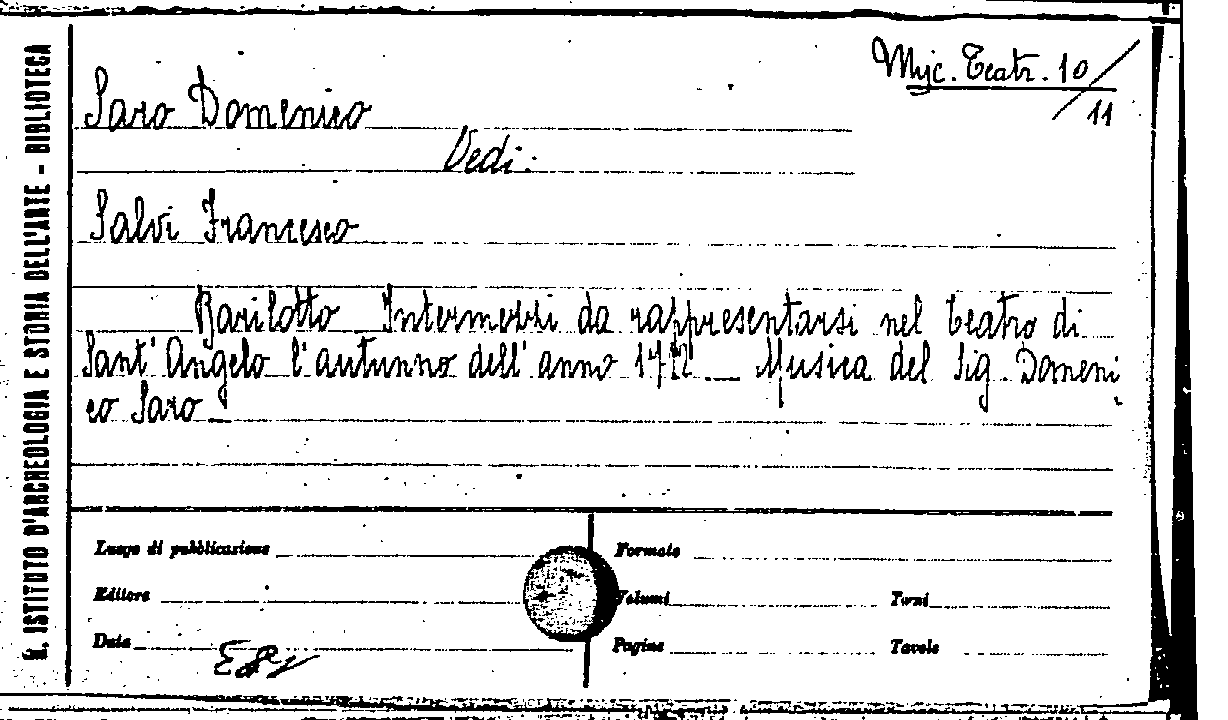 R. ISTITUTO D'ARCHEOLOGIA E STORIA DELL'ARTE - BIBLIOTECA
Misc. Teatr. 10/11
Saro Domenico
Vedi:
Salvi Francesco
Barilotto Intermezzi da rappresentarsi nel teatro di
Sant' Angelo l'autunno dell' anno 1712 _ Musica del Sig. Domeni
co Saro _
Luogo di pubblicazione
Formato
Editore
Volumi
Tomi
Data
Pagine
Tavole